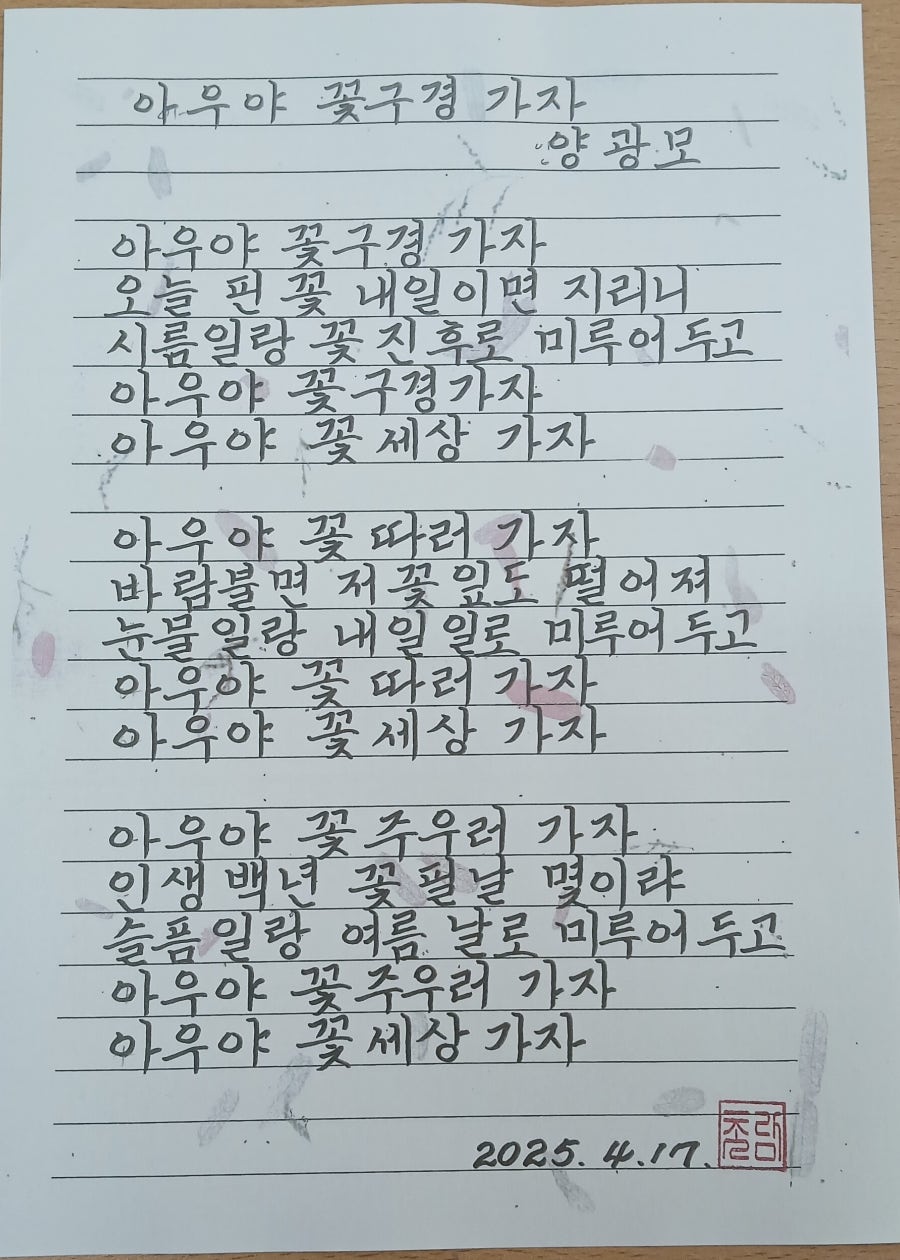 아우야 꽃구경 가자
양광모
아우야 꽃구경 가자
오늘 핀 꽃 내일이면 지리니
시름일랑 꽃 진 후로 미루어 두고
아우야 꽃구경가자
아우야 꽃 세상 가자
아우야 꽃 따러 가자
바람불면 저 꽃잎도 떨어져
눈물일랑 내일 일로 미루어 두고
아우야 꽃 따러 가자
아우야 꽃 세상 가자
아우야 꽃 주우러 가자
인생 백년 꽃 필 날 몇이랴
슬픔일랑 여름 날로 미루어 두고
아우야 꽃 주우러 가자
아우야 꽃 세상 가자
2025. 4. 17.